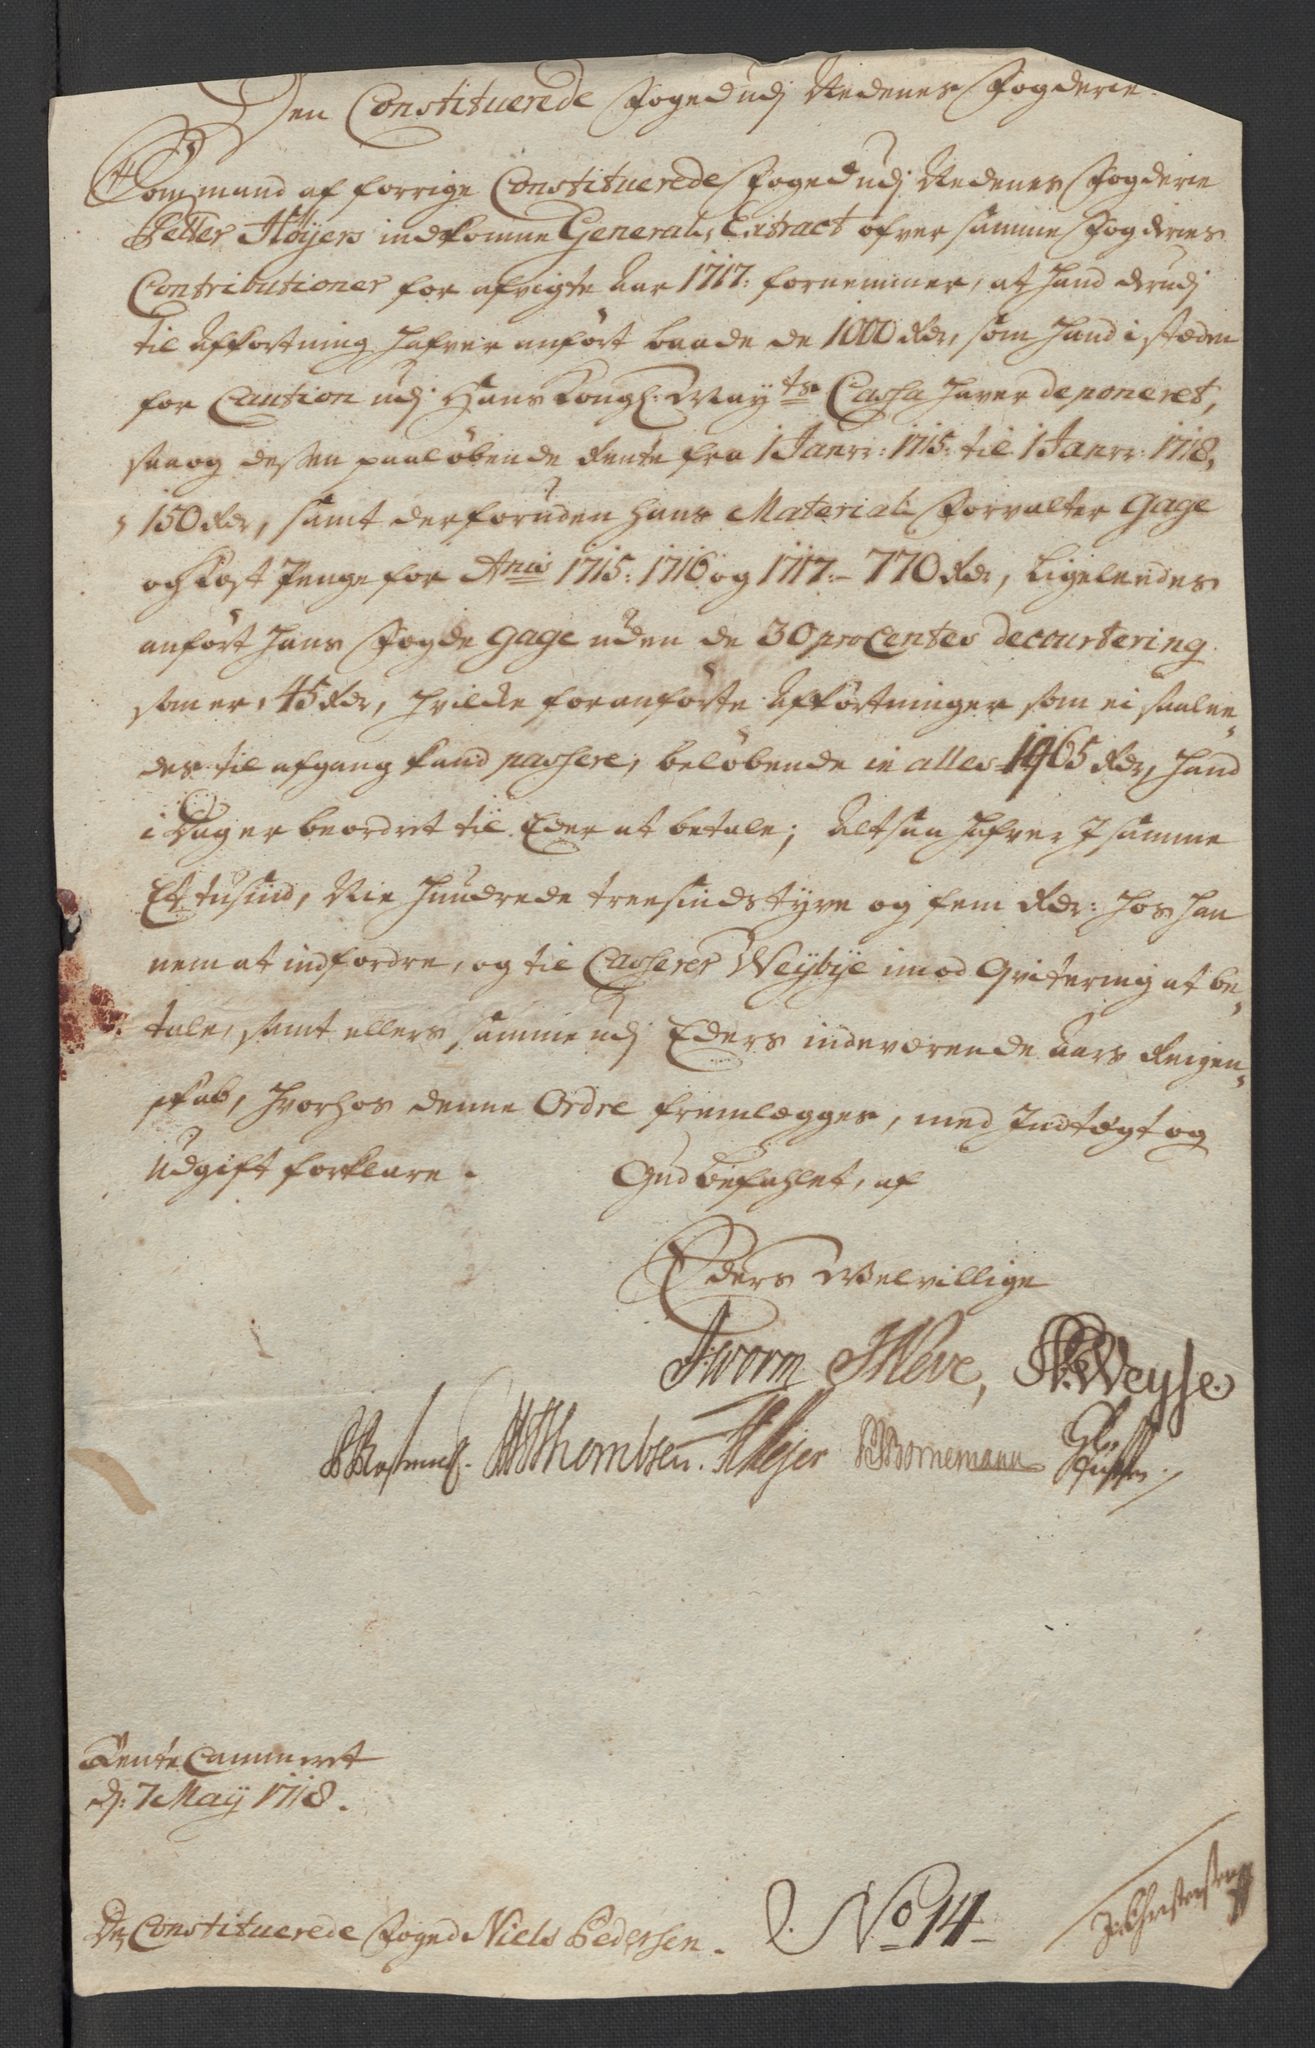 Den Constituerede Foged udj Nedenes Fogderie.
Som mand af forrige Constituerede Foged udj Nedenes Fogderie
Petter Høÿers indkomne General Extract ofver samme Fogderies
Contributioner for afvigte Aar 1717: fornemmer, at hand derudj
til Afkortning hafver anført baade de 1000 Rdr, som hand i stæden
for Caution udj Hans Kongl: Maÿts Cassa haver deponeret,
saa og dessen paaløbende Rente fra 1 Janrr: 1715: til 1 Janrr: 1718,
150 Rdr, samt derforuden hans Material Forvalter Gage
och Kost Penge for Anis 1715: 1716 og 1717:- 770 Rdr, Ligeleedes
anført hans Fogde Gage uden de 30 pro Centes decourtering
som er, 45 Rdr, hvilke foranførte Afkortninger som ei saalee„
des til afgang kand passere, beløbende in alles 1965 Rdr, hand
i Dag er beordret til Eder at betale; Altsaa hafver I samme
Et tusind, Nie hundrede treesindstyve og fem Rdr: hos han
nem at indfordre, og til Casserer Weÿbÿe imod Qvitering at be„
tale, samt ellers samme udj Eders indeværende Aars Reigen„
skab, hvorhos denne Ordre fremlægges, med Indtægt og
Udgift forklare.    Gud befahlet, af
Eders Welvillige
Worm   Neve,   Weyse.
Thombsen.   Meÿer   Bornemann
Rente Cammeret
d: 7 Maÿ 1718.
Dn Constituerede Foged Niels Pedersen.   No 14
Christensen